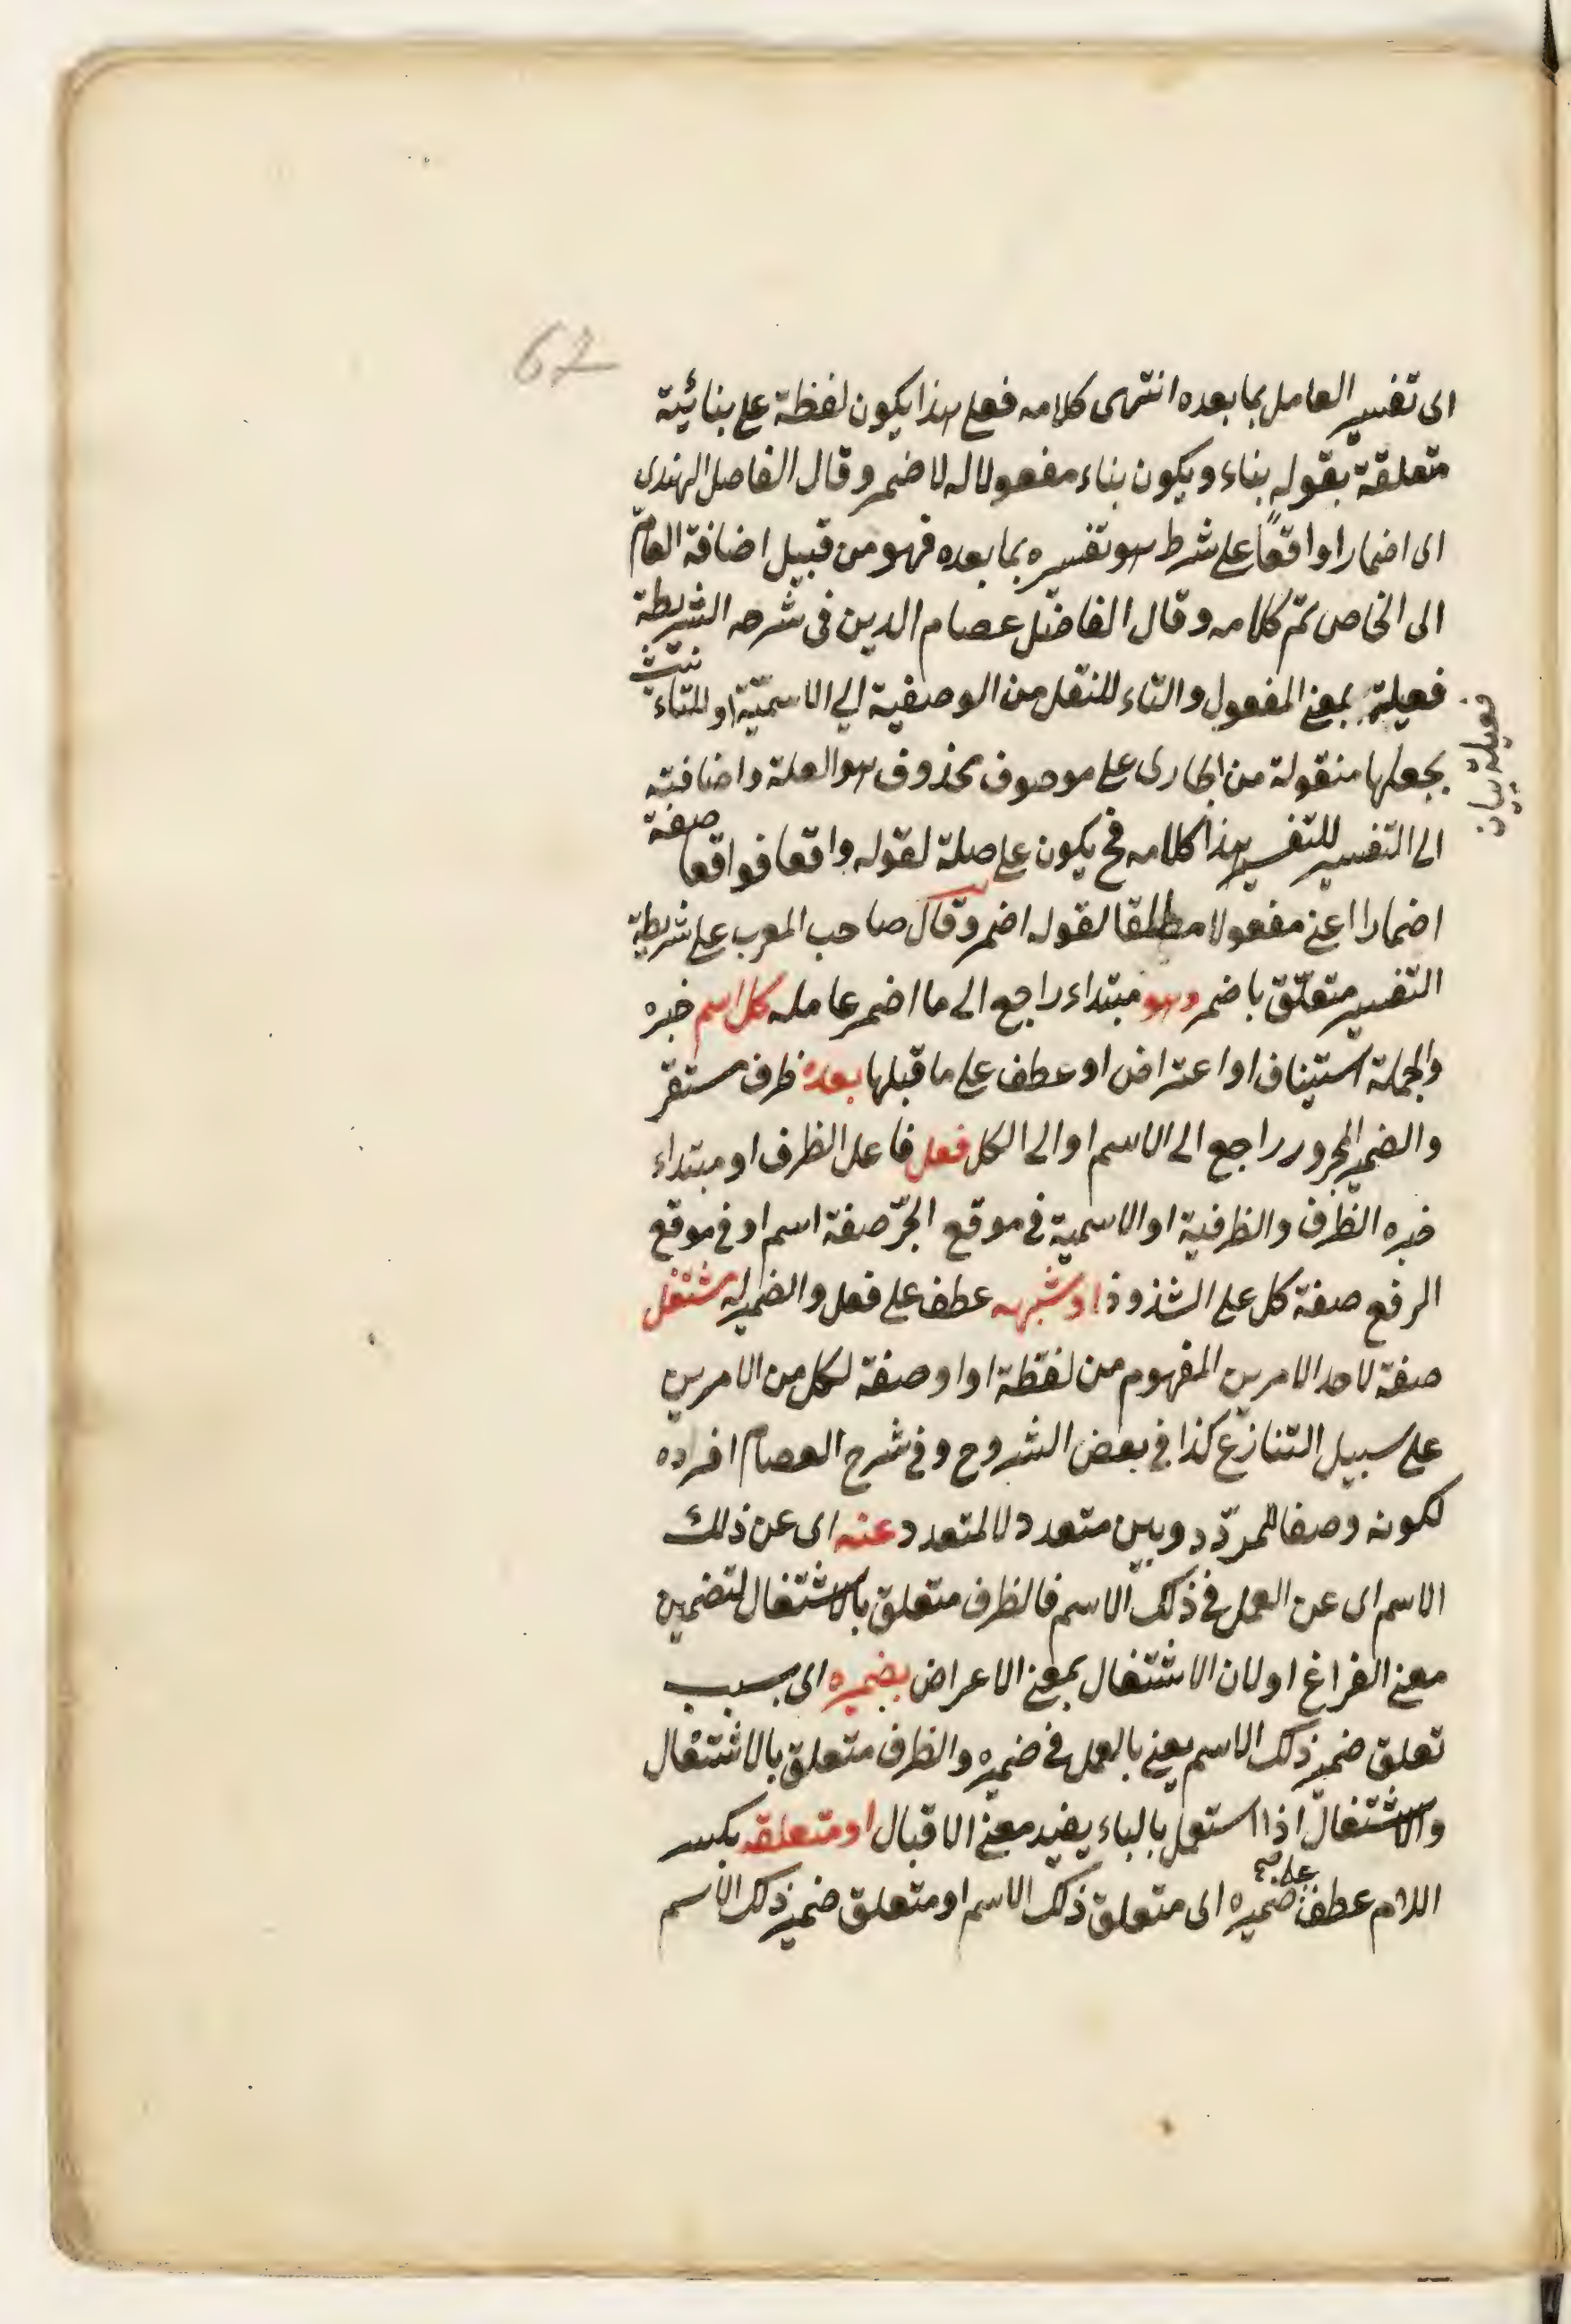 62
الى تفسير العامل بما بعده انتهى كلامه فعلى هذا يكون لفظة على بنائية
متعلقة بقوله بناء ويكون بناء مفعولا له لاضمر وقال الفاضل الهندى
اى اضمارا واقعا على شرط هو تفسيره بما بعده فهو من قبيل اضافة العامّ
الى الخاص تمّ كلامه وقال الفاضل عصام الدين فى شرحه الشريطة
فعيلة بمعنى المفعول والتاء للنقل من الوصفية الى الاسميّة او للتاء نيث
بجعلها منقولة من الجارى على موصوف محذوف هو العلة واضافته
الى التفسير للتفسير هذا كلامه فح يكون على صلة لقوله واقعا فواقعا صفة
اضمارا اعنى مفعولا مطلقا لقوله اضمر وقال صاحب المعرب على شريطة
التفسير متعلّق باضمر وهو مبتداء راجع الى ما اضمر عامله كل اسم خبره
والجملة استيناف او اعتراض او عطف على ما قبلها بعده ظرف مستقر
والضمير المجرور راجع الى الاسم او الى الكل فعل فاعل الظرف او مبتداء
خبره الظرف والظرفية او الاسمية فى موقع الجرّ صفة اسم او فى موقع
الرفع صفة كل على الشذوذ او شبهه عطف على فعل والضمير له مشتغل
صفة لاحد الامرين المفهوم من لفظة او او صفة لكل من الامرين
على سبيل التنازع كذا فى بعض الشروح وفى شرح العصام افراده
لكونه وصفا للمردّد وبين متعدد لا لمتعدد عنه اى عن ذلك
الاسم اى عن العمل فى ذلك الاسم فالظرف متعلق بالاشتغال لتضمين
معنى الفراغ او لان الاشتغال بمعنى الاعراض بضميره اى بسبب
تعلق ضمير ذلك الاسم يعنى بالعمل فى ضميره والظرف متعلق بالاشتغال
والاشتغال اذا استعمل بالباء يفيد معنى الاقبال او متعلقه بكسر
اللام عطف على ضميره اى متعلق ذلك الاسم او متعلق ضمير ذلك الاسم